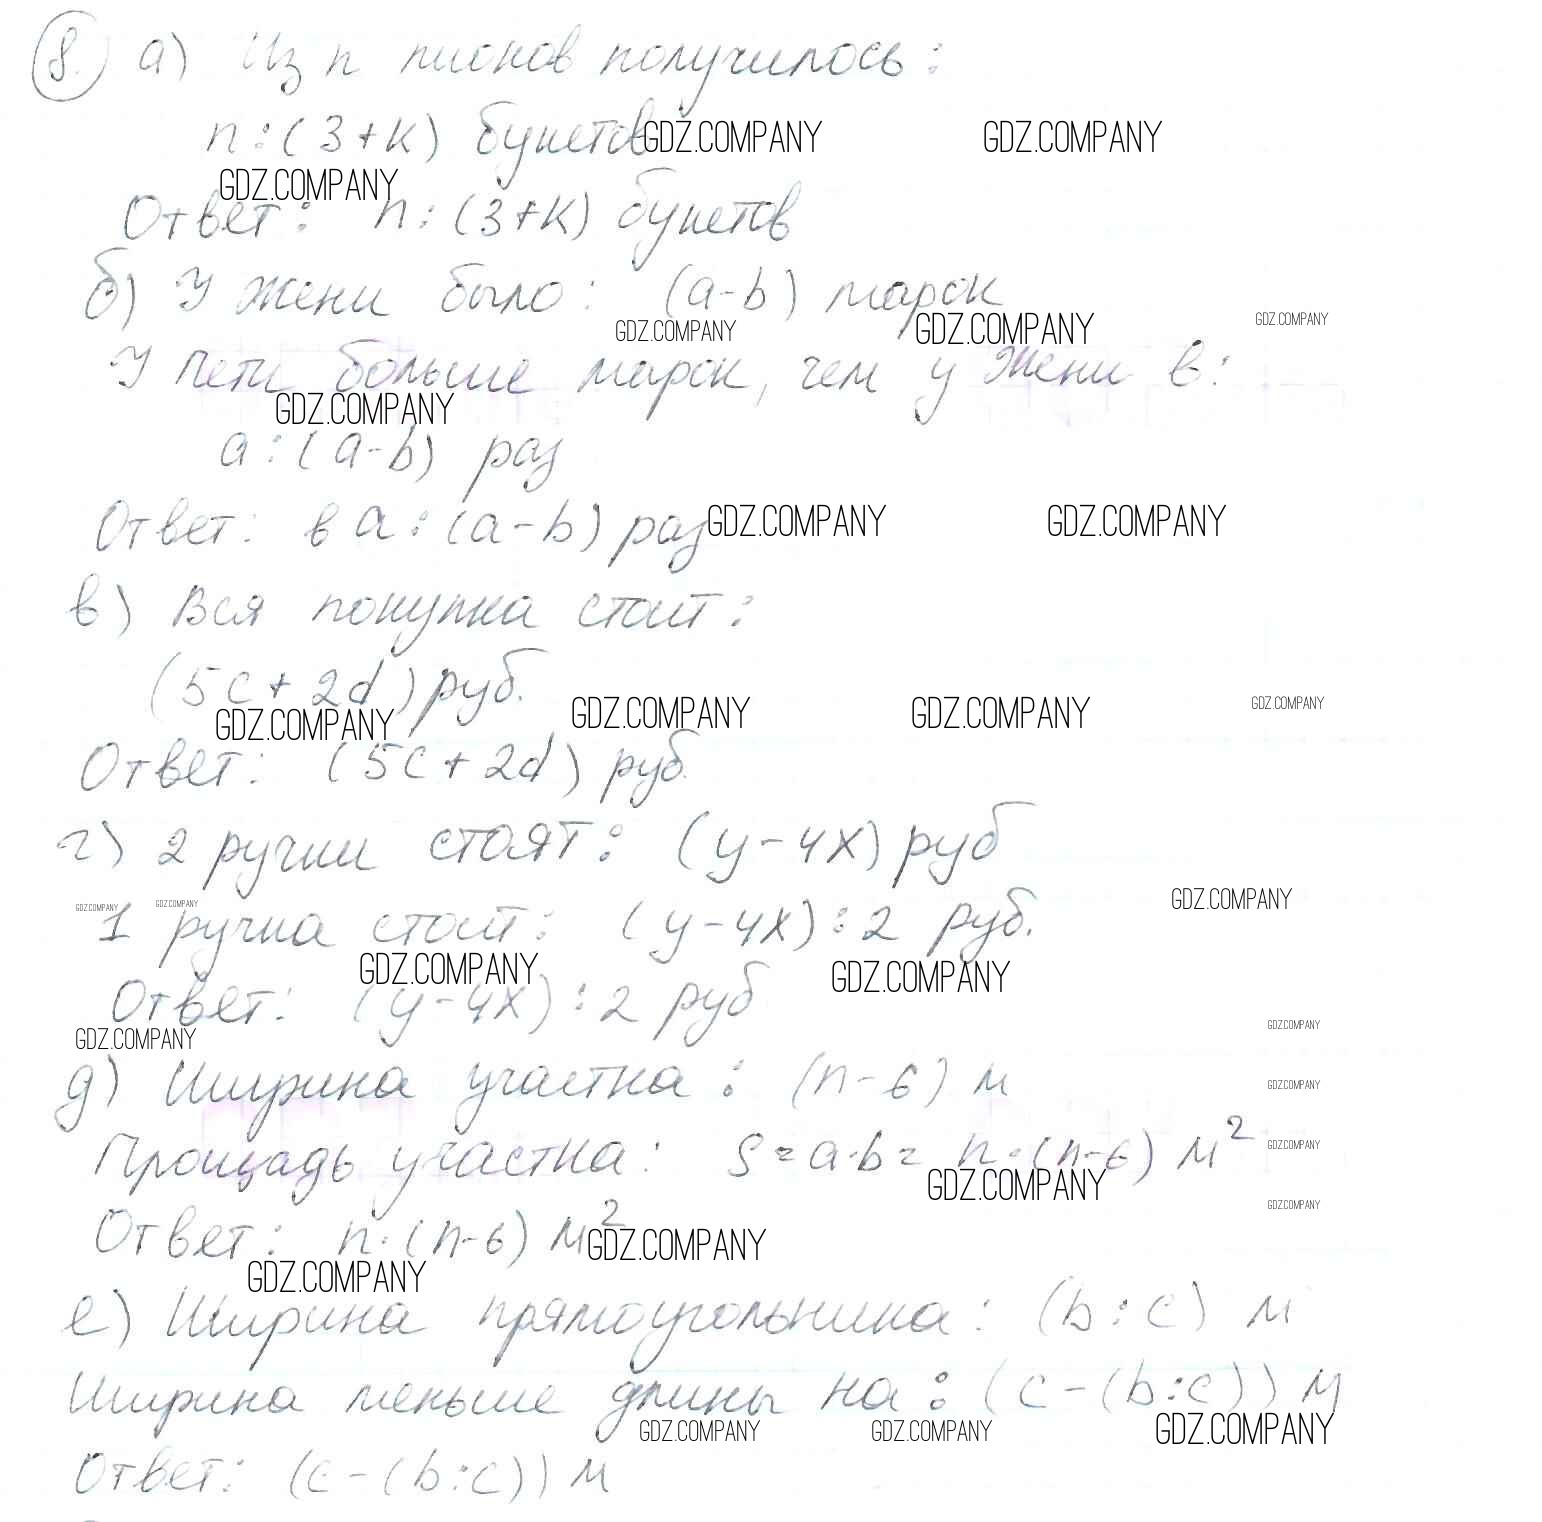 8. а) Из n пионов получилось:
n:(3+k) букетов GDZ.COMPANY GDZ.COMPANY
GDZ.COMPANY
Ответ: n:(3+k) букетов
б) У Жени было: (a-b) марок
GDZ.COMPANY GDZ.COMPANY GDZ.COMPANY
У Пети больше марок, чем у Жени в:
GDZ.COMPANY
a:(a-b) раз
Ответ: в a:(a-b) раз GDZ.COMPANY GDZ.COMPANY
в) Вся покупка стоит:
(5c+2d) руб.
GDZ.COMPANY GDZ.COMPANY GDZ.COMPANY GDZ.COMPANY
Ответ: (5c+2d) руб.
г) 2 ручки стоят: (y-4x) руб
GDZ.COMPANY GDZ.COMPANY GDZ.COMPANY
1 ручка стоит: (y-4x):2 руб.
GDZ.COMPANY GDZ.COMPANY
Ответ: (y-4x):2 руб
GDZ.COMPANY GDZ.COMPANY
д) Ширина участка: (n-6) м GDZ.COMPANY
Площадь участка: S=a·b= n·(n-6) м² GDZ.COMPANY
GDZ.COMPANY GDZ.COMPANY
Ответ: n·(n-6) м² GDZ.COMPANY
GDZ.COMPANY
е) Ширина прямоугольника: (b:c) м
Ширина меньше длины на: (c-(b:c)) м
GDZ.COMPANY GDZ.COMPANY GDZ.COMPANY
Ответ: (c-(b:c)) м